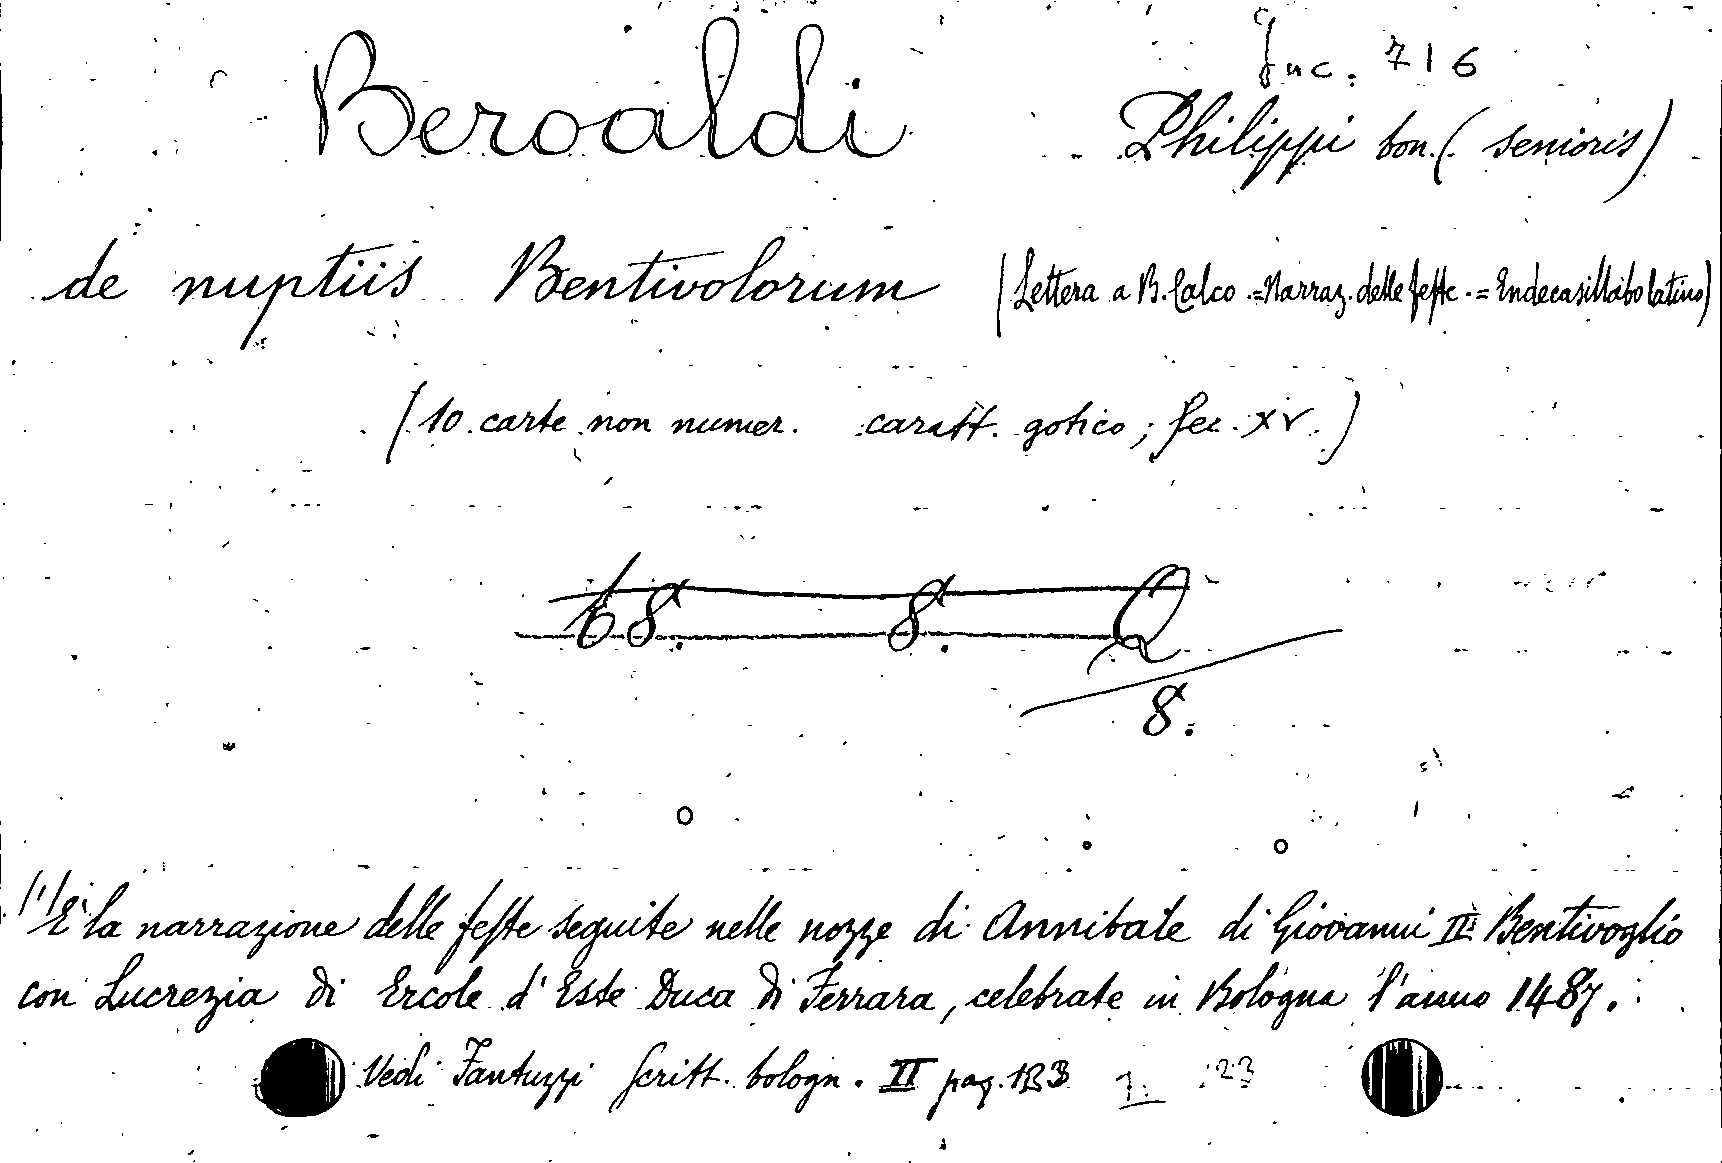 Inc. 716
Beroaldi Philippi bon. (senioris)
de nuptiis Bentivolorum (Lettera a B. Calco = Narraz. delle feste = Endecasillabo latino)
(10 carte non numer. caratt. gotico; sec. XV.)
68. 8. Q
8.
(1) E la narrazione delle feste seguite nelle nozze di Annibale di Giovanni II Bentivoglio
con Lucrezia di Ercole d'Este Duca di Ferrara, celebrate in Bologna l'anno 1487.
Vedi Fantuzzi Scritt. bologn. II pag. 133